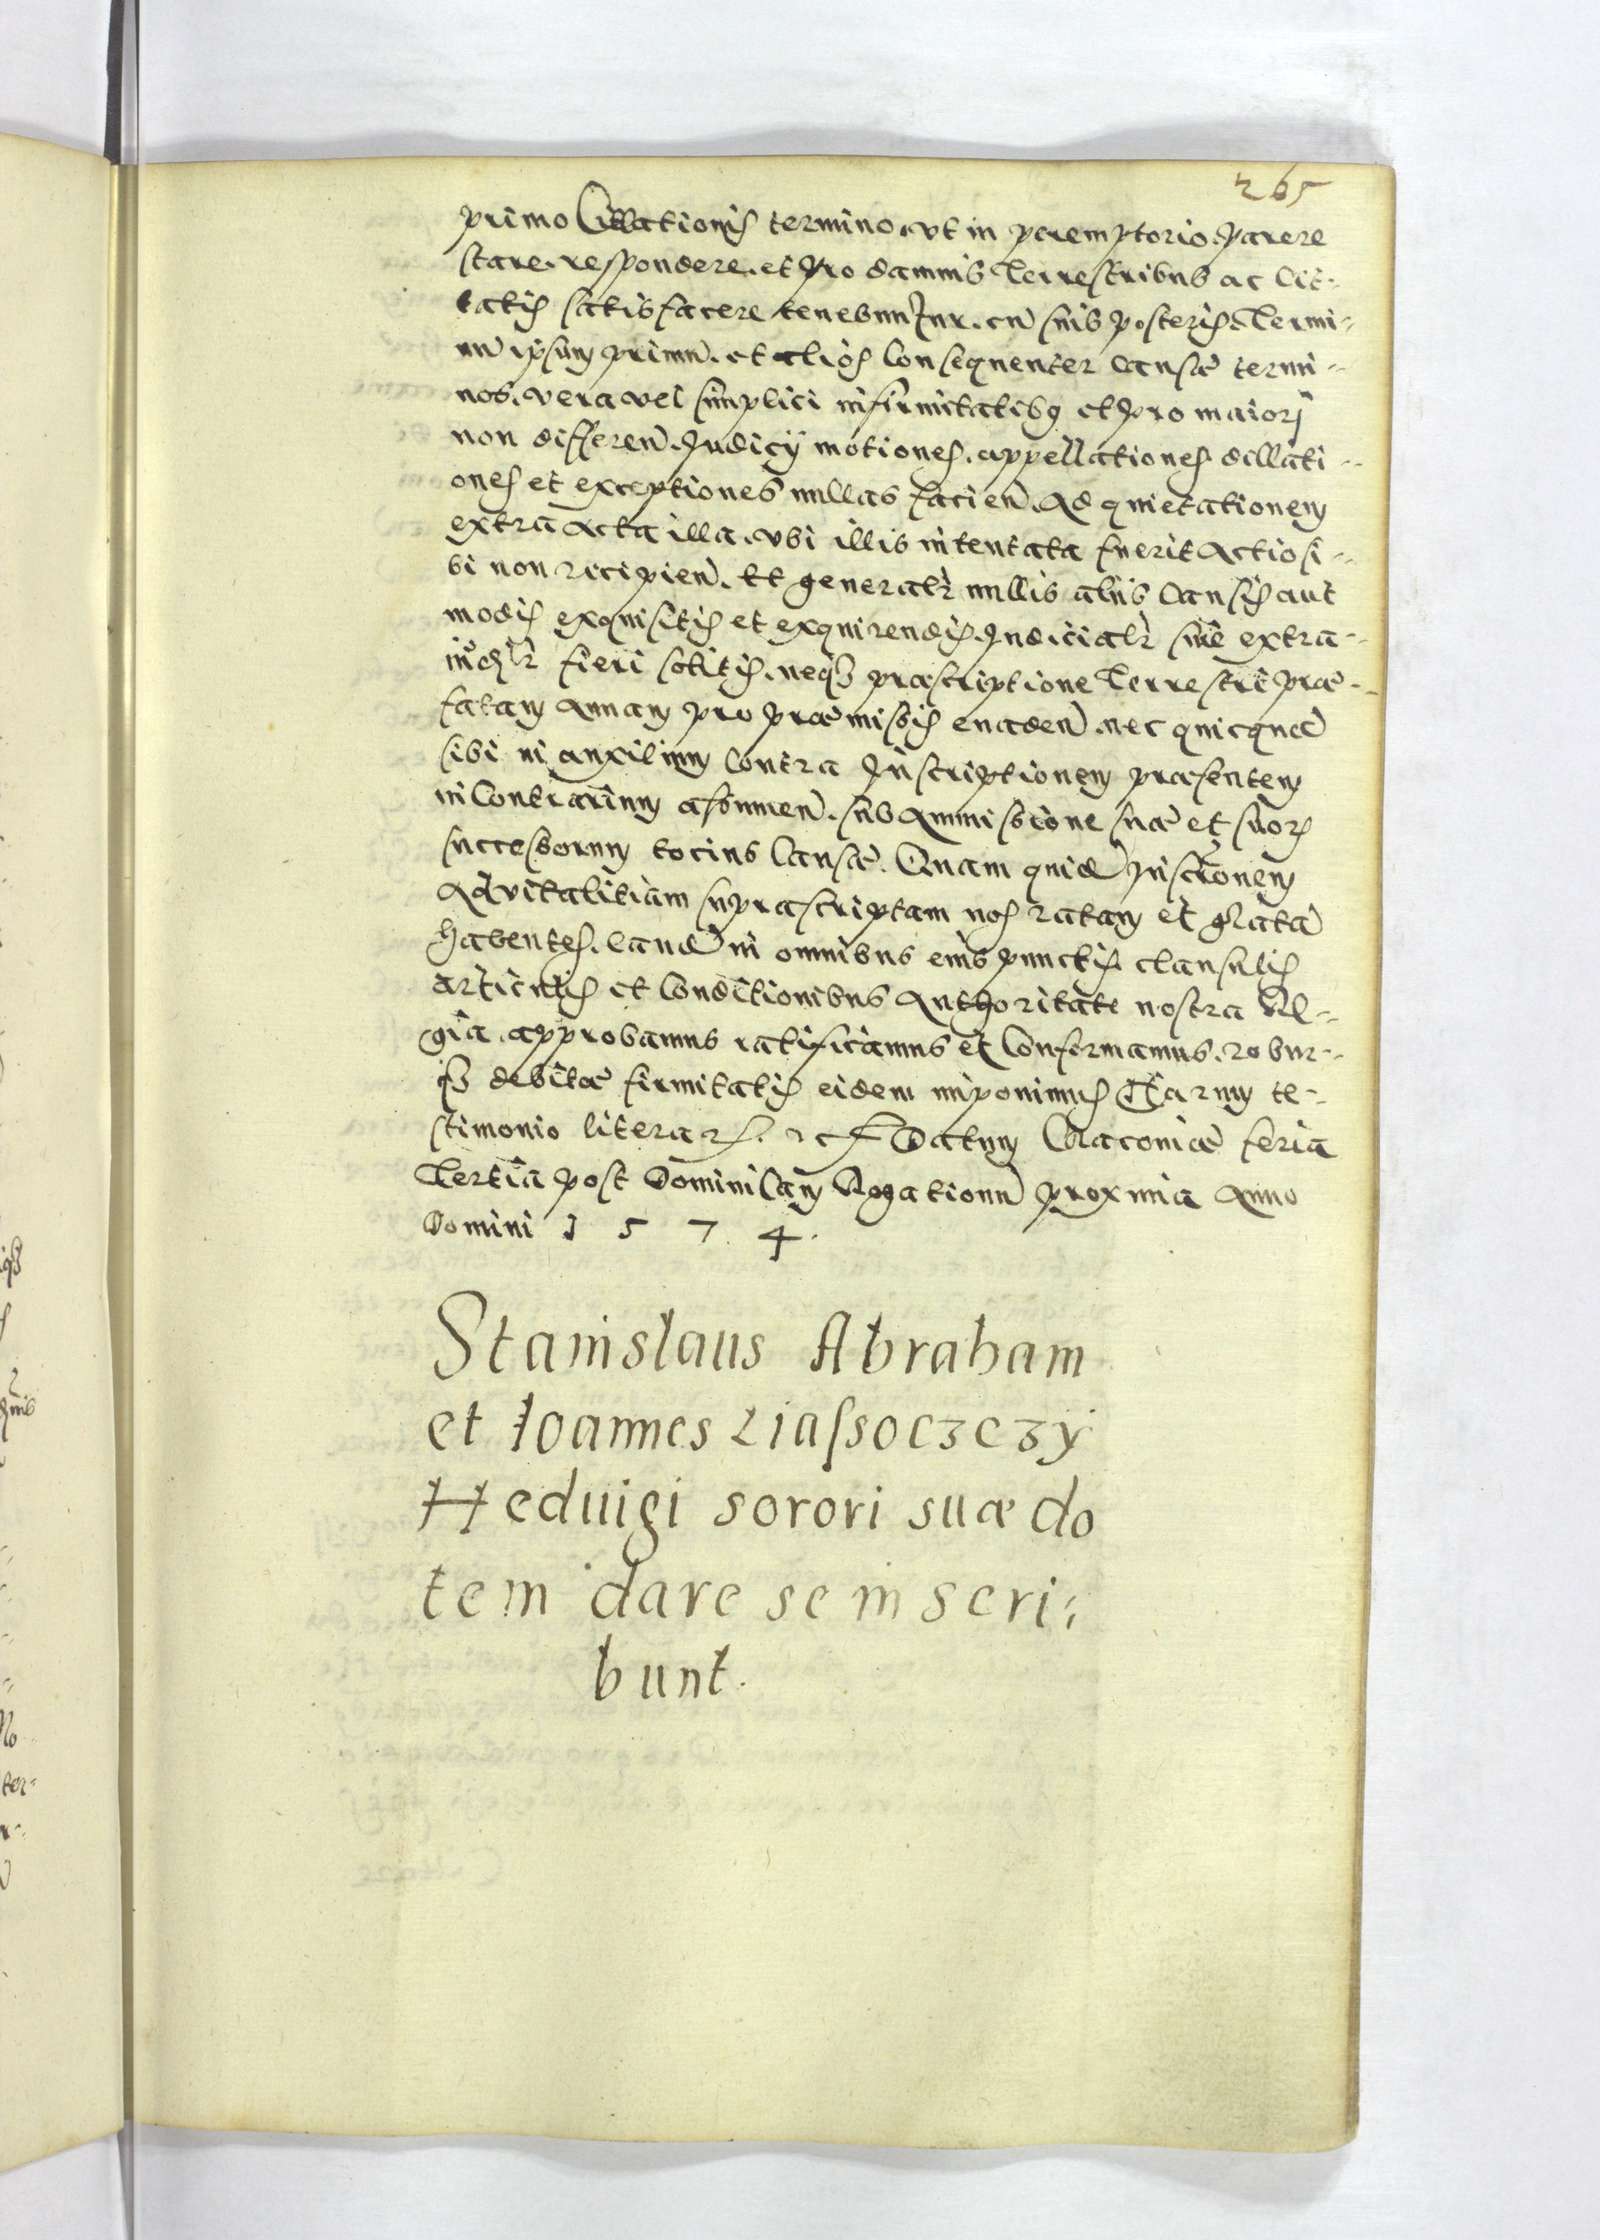 265
primo Citationis termino, vt in peremptorio, parere
stare, respondere, et pro damnis Terrestribus ac Cit-
tatis satisfacere tenebuntur, cu suis posteris, Termi-
nu ipsum primu, et alios Consequenter Causæ termi-
nos, vera vel simplici infirmitatibus et pro maiori
non differen. Judicij motiones, appellationes dillati-
ones et exceptiones nullas facien. Ad quietationem
extra Acta illa, vbi illis intentata fuerit Actio si-
bi non recipien. Et generalr nullis alijs Causis aut
modis exquisitis et exquirendis, Judicialr siue extra-
fieri solitis, neq3 præscriptione Terrestri præ-
fatam Annam pro præmissis euaden. nec quicqua
sibi in auxilium Contra Inscriptionem præsentem
in Contrarium assumen. sub Ammissione suæ et suor
successorum totius Causæ. Quam quid Inscronem
Aduitalitiam suprascriptam nos ratam et grata
habentes. eand in omnibus eius punctis clausulis
articulis et Conditionibus Authoritate nostra Re-
gia, approbamus ratificamus et Confirmamus, robur-
q3 debitæ firmitatis eidem imponimus Harum te-
stimonio literar. etc Datum Cracouiæ feria
Tertia post Dominicam Rogationu proxima Anno
Domini 1 5 7 4.
Stanislaus Abraham
et Ioannes Liassoczczy
Heduigi sorori suæ do
tem dare se inscri-
bunt.